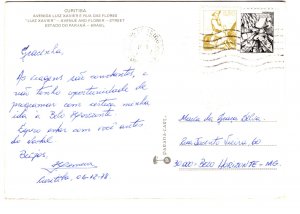 CURITIBA
AVENIDA LUIZ XAVIER E RUA DAS FLORES
"LUIZ XAVIER" - AVENUE AND FLOWER - STREET
ESTADO DO PARANÁ - BRASIL
Gracinha,
As viagens são constantes, e
não tenho oportunidade de
programar com certeza minha
ida a Belo Horizonte.
Espero estar com você antes
do Natal.
Beijos,
Curitiba, 06-12-78
Maria da Graça
60
30.000 - BELO HORIZONTE - MG.